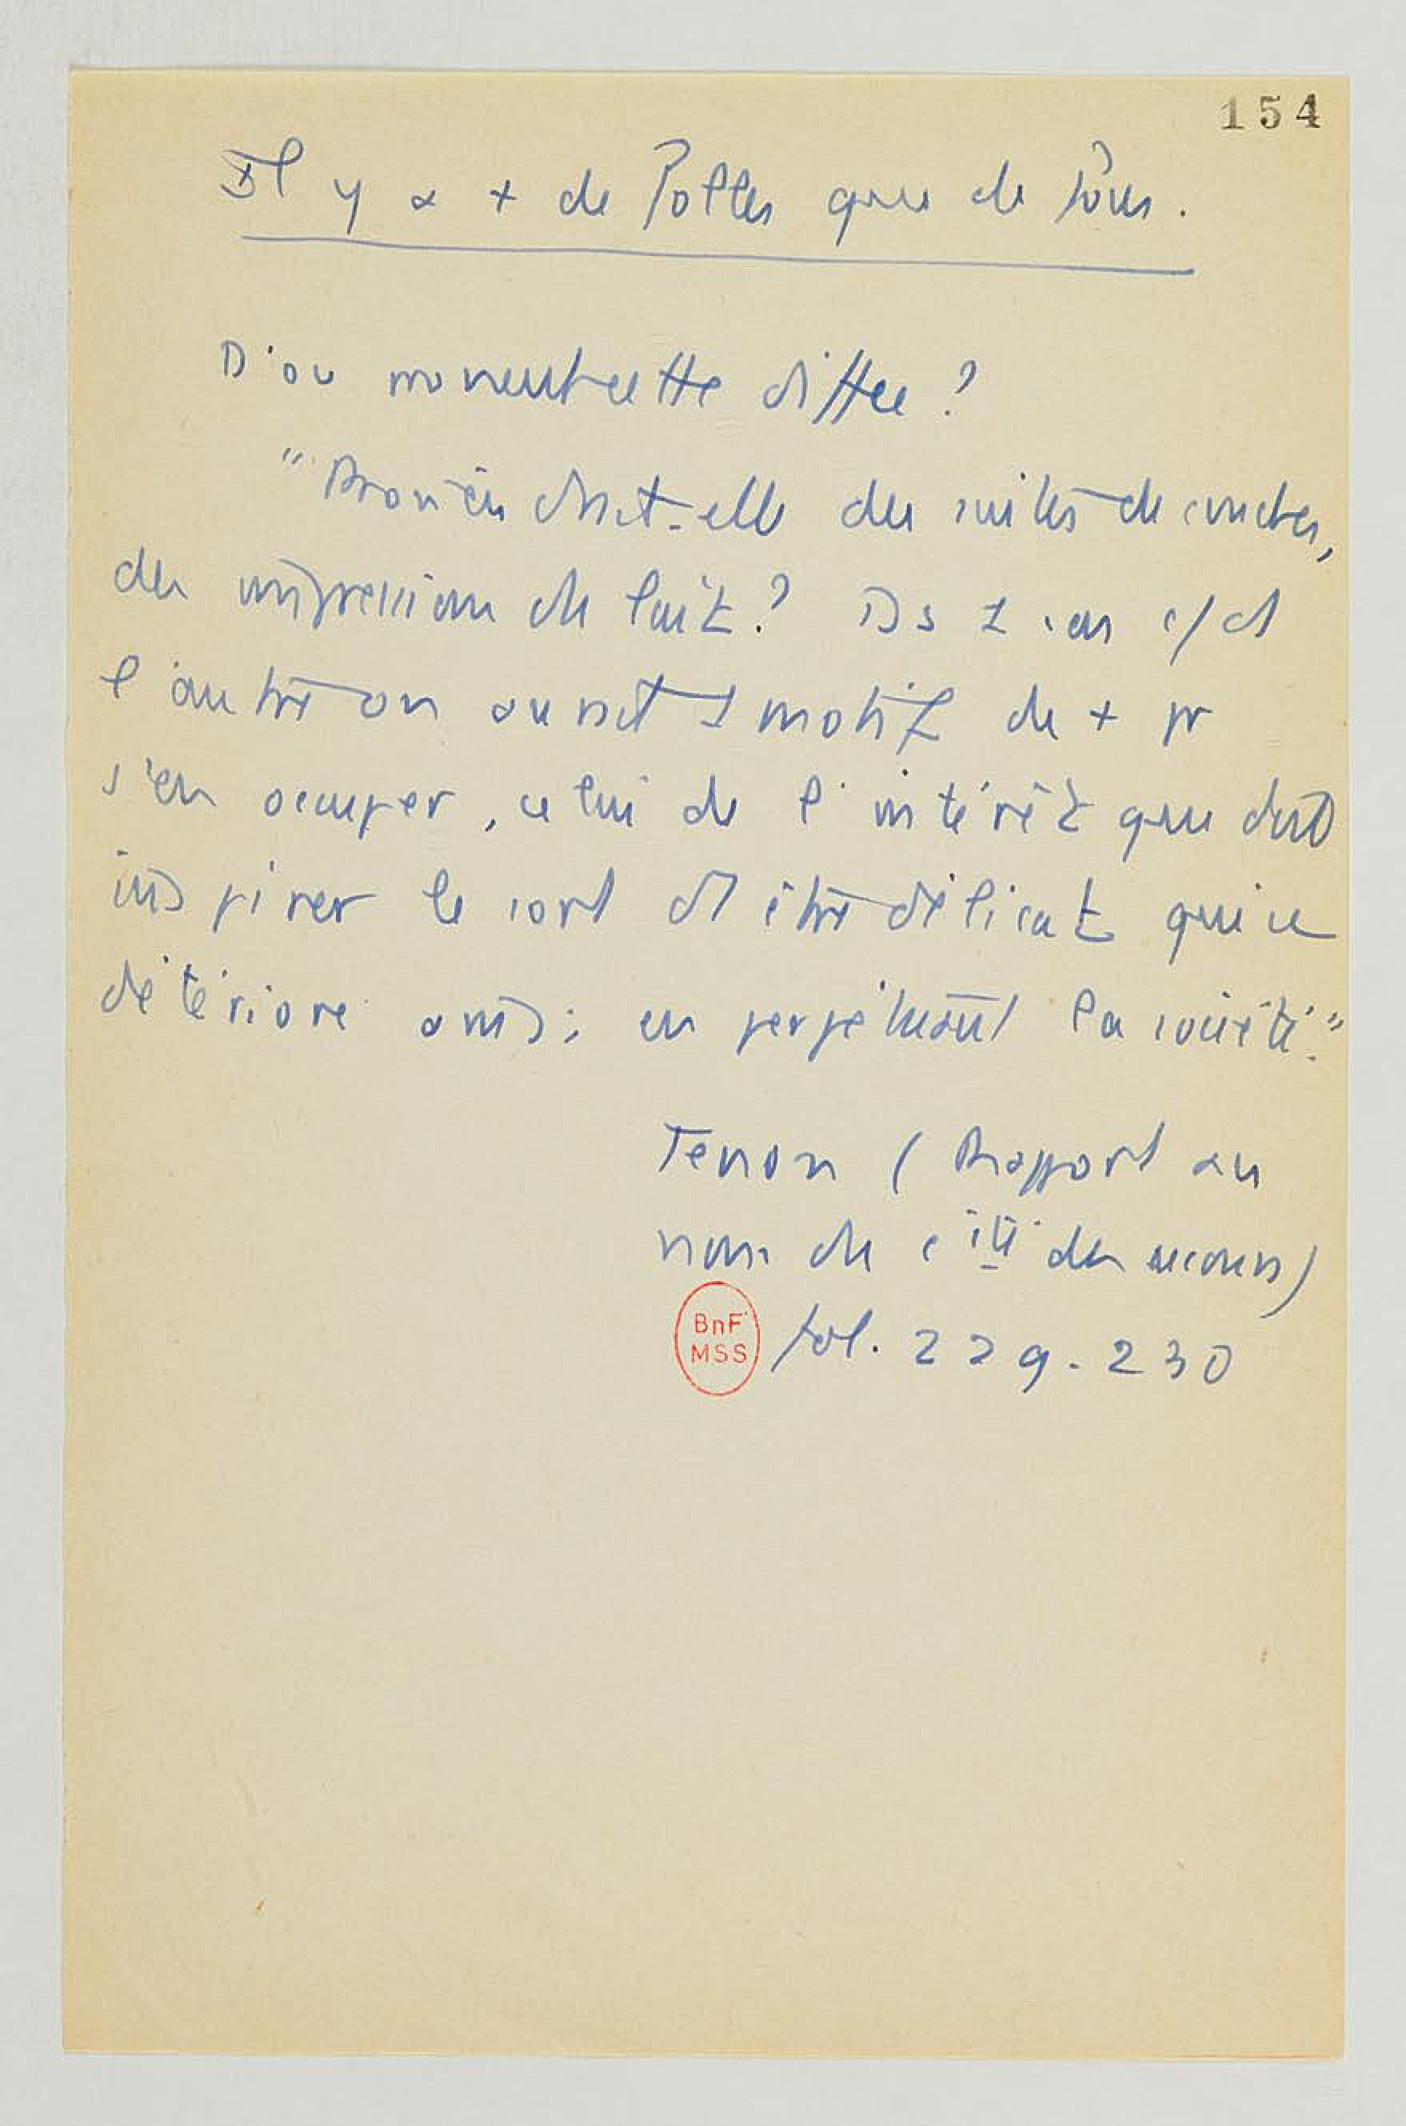 154
Il y a + de folles que de fous.
D'où provient cette diffce ?
"Provien drait-elle des suites de couches,
des suppressions de lait ? Ds 1 cas c/ds
l'autre on aurait 1 motif de + pr
s'en occuper, celui de l'intérêt que doit
inspirer le sort d'1 être délicat qui se
détériore ainsi en perpétuant la société."
Tenon (Rapport au
nom du cité des secours)
fol. 229-230
BnF
MSS